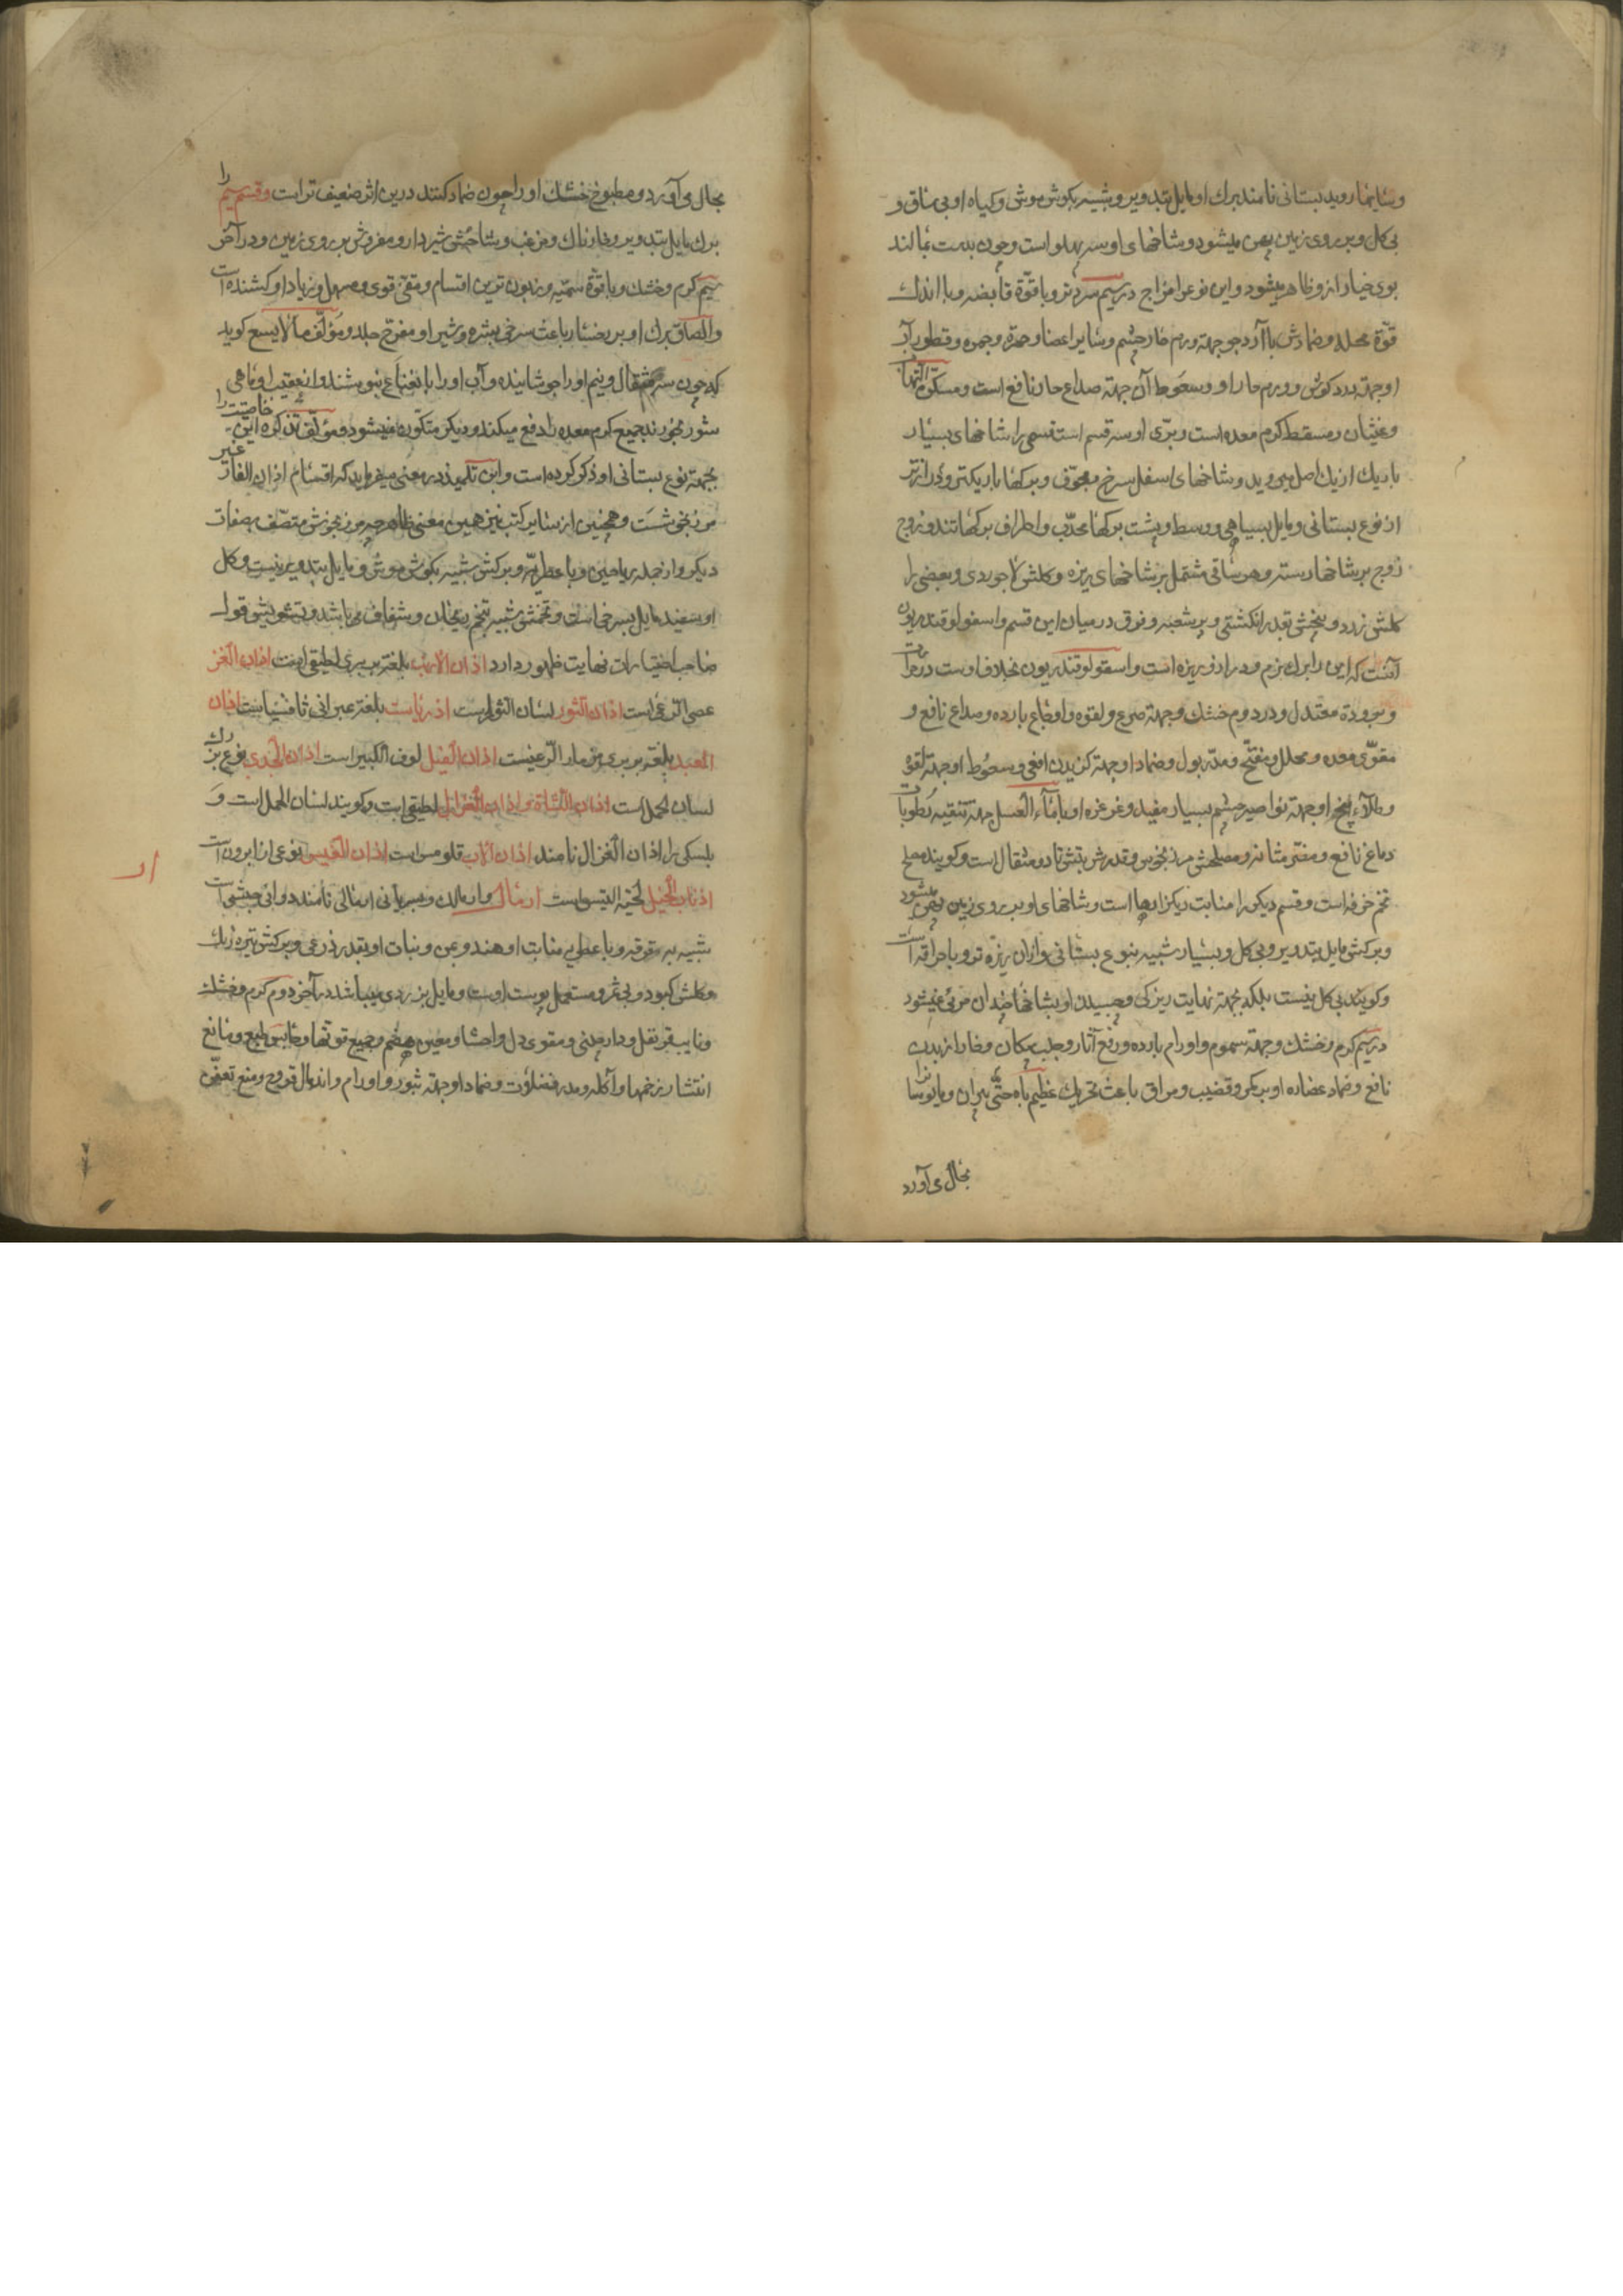 و سایهها روید بستانی نامند برک او مایل بتدویر و شبیه بکوش موش و کیاه او بی ساق و
بی کل و بر روی زمین پهن میشود و شاخهای او سه پهلو است و چون بدست بمالند
بوی خیار ازو ظاهر میشود و این نوع را مزاج در سیم سرد و تر و با قوّة قابضه و با اندک
قوّة محلله و ضمادش با آرد جو جهة ورم حار چشم و سایر اعضا و حمره و جمره و قطور آب
او جهة درد کوش و ورم حار او و سعوط آن جهة صداع حار نافع است و مسکن التهاب
و غثیان و مسقط کرم معده است و برّی او سه قسم است قسمی را شاخهای بسیار
باریک از یک اصل میروید و شاخهای اسفل سرخ و مجوّف و برکها باریکتر و درازتر
از نوع بستانی و مایل بسیاهی و وسط و پشت برکها محدّب و اطراف برکها تند و زوج
زوج بر شاخها رسته و هر ساقی مشتمل بر شاخهای ریزه و کلش لاجوردی و بعضی را
کلش زرد و بیخش بقدر انکشتی و پر شعبه و فرق در میان این قسم و اسقولوقندریون
آنست که این را برک نرم و دراز و ریزه است و اسقولوقندریون بخلاف اوست در حرارت
و برودة معتدل و در دوم خشک و جهة صرع و لقوه و اوجاع بارده و صداع نافع و
مقوّی معده و محلل و مفتّح و مدرّ بول و ضماد او جهة کزیدن افعی و سعوط او جهة لقوه
و طلآء بیخ او جهة نواصیر چشم بسیار مفید و غرغره او با مآء العسل جهة تنقیه رطوبات
دماغ نافع و مضر مثانه و مصلحش مرزنجوش و قدر شربتش تا دو مثقال است و کویند مصلح
تخم خرفه است و قسم دیکر را منابت ریکزارها است و شاخهای او بر روی زمین پهن میشود
و برکش مایل بتدویر و بی کل و بسیار شبیه بنوع بستانی و ازان ریزه تر و با حراقه است
و کویند بی کل نیست بلکه بجهة نهایت ریزکی و چسبیدن او بشاخها چندان مرئی نمیشود
در سیم کرم و خشک و جهة سموم و اورام بارده و رفع آثار و جلب پیکان و خار از بدن
نافع و ضماد عصاره او بر کمر و قضیب و مراق باعث تحریک عظیم باه حتّی پیران و مایوسان را
بحال می آورد
بحال می آورد و مطبوخ خشک او را چون ضماد کنند درین اثر ضعیف تر است و قسم سیم را
برک مایل بتدویر و خارناک و مزغب و شاخش شیردار و مفروش بر روی زمین و در آخر
سیم کرم و خشک و با قوّة سمّیه و زبون ترین اقسام و مقئ قوی و مسهل و زیاد او کشنده است
و الصاق برک او بر رخسار باعث سرخی بشره و شیر او مقرّح جلد و مؤلّف ما لا یسع کوید
که چون سه مثقال و نیم او را جوشانیده و آب او را با نعناع بنوشند و از عقیب او ماهی
شور بخورند جمیع کرم معده را دفع میکند و دیکر متکوّن نمیشود و مؤلّف تذکره این خاصیت را
بجهة نوع بستانی او ذکر کرده است و ابن تلمیذ در مغنی میفرماید که اقسام اذان الفار غیر
مرزنجوشست و همچنین از سایر کتب نیز همین معنی ظاهر چه مرزنجوش متصّف بصفات
دیکر و از جمله ریاحین و با عطریّه و برکش شبیه بکوش موش و مایل بتدویر نیست و کل
او سفید مایل بسرخی است و تخمش شبیه بتخم ریحان و شفاف می باشد و تشویش قول
صاحب اختیارات نهایت ظهور دارد اذان الارنب بلغة بربری لصیقی است اذان العنز
عصی الرّاعی است اذان الثور لسان الثور است اذریاست بلغة عبرانی ثافسیاست اذان
العبد بلغة بربری مزمار الرّاعیست اذان الفیل لوف الکبیر است اذان الجدی نوع بزرک
لسان الحمل است اذان الشاة و اذان الغزال لصیقی است و کویند لسان الحمل است و
بلسکی را اذان الغزال نامند اذان الدب قلومس است اذان القسیس نوعی از ابرون است
اذناب الخیل لحیة التیس است ارمال و ارمالک و بسریانی ارمالی نامند دوائی چوبی است
شبیه به قرفه و با عطریه منابت او هند و یمن و نبات او بقدر ذرعی و برکش تیره رنک
و کلش کبود و بی ثمر و مستعمل پوست اوست و مایل بزردی میباشد در آخر دوم کرم و خشک
و نایب قرنفل و دارچینی و مقوی دل و احشا و معین هضم و جمیع قوتها و حابس طبع و مانع
انتشار زخمها و آکله و مدر فضلات و ضماد او جهة بثور و اورام و اندمال قروح و منع تعفّن